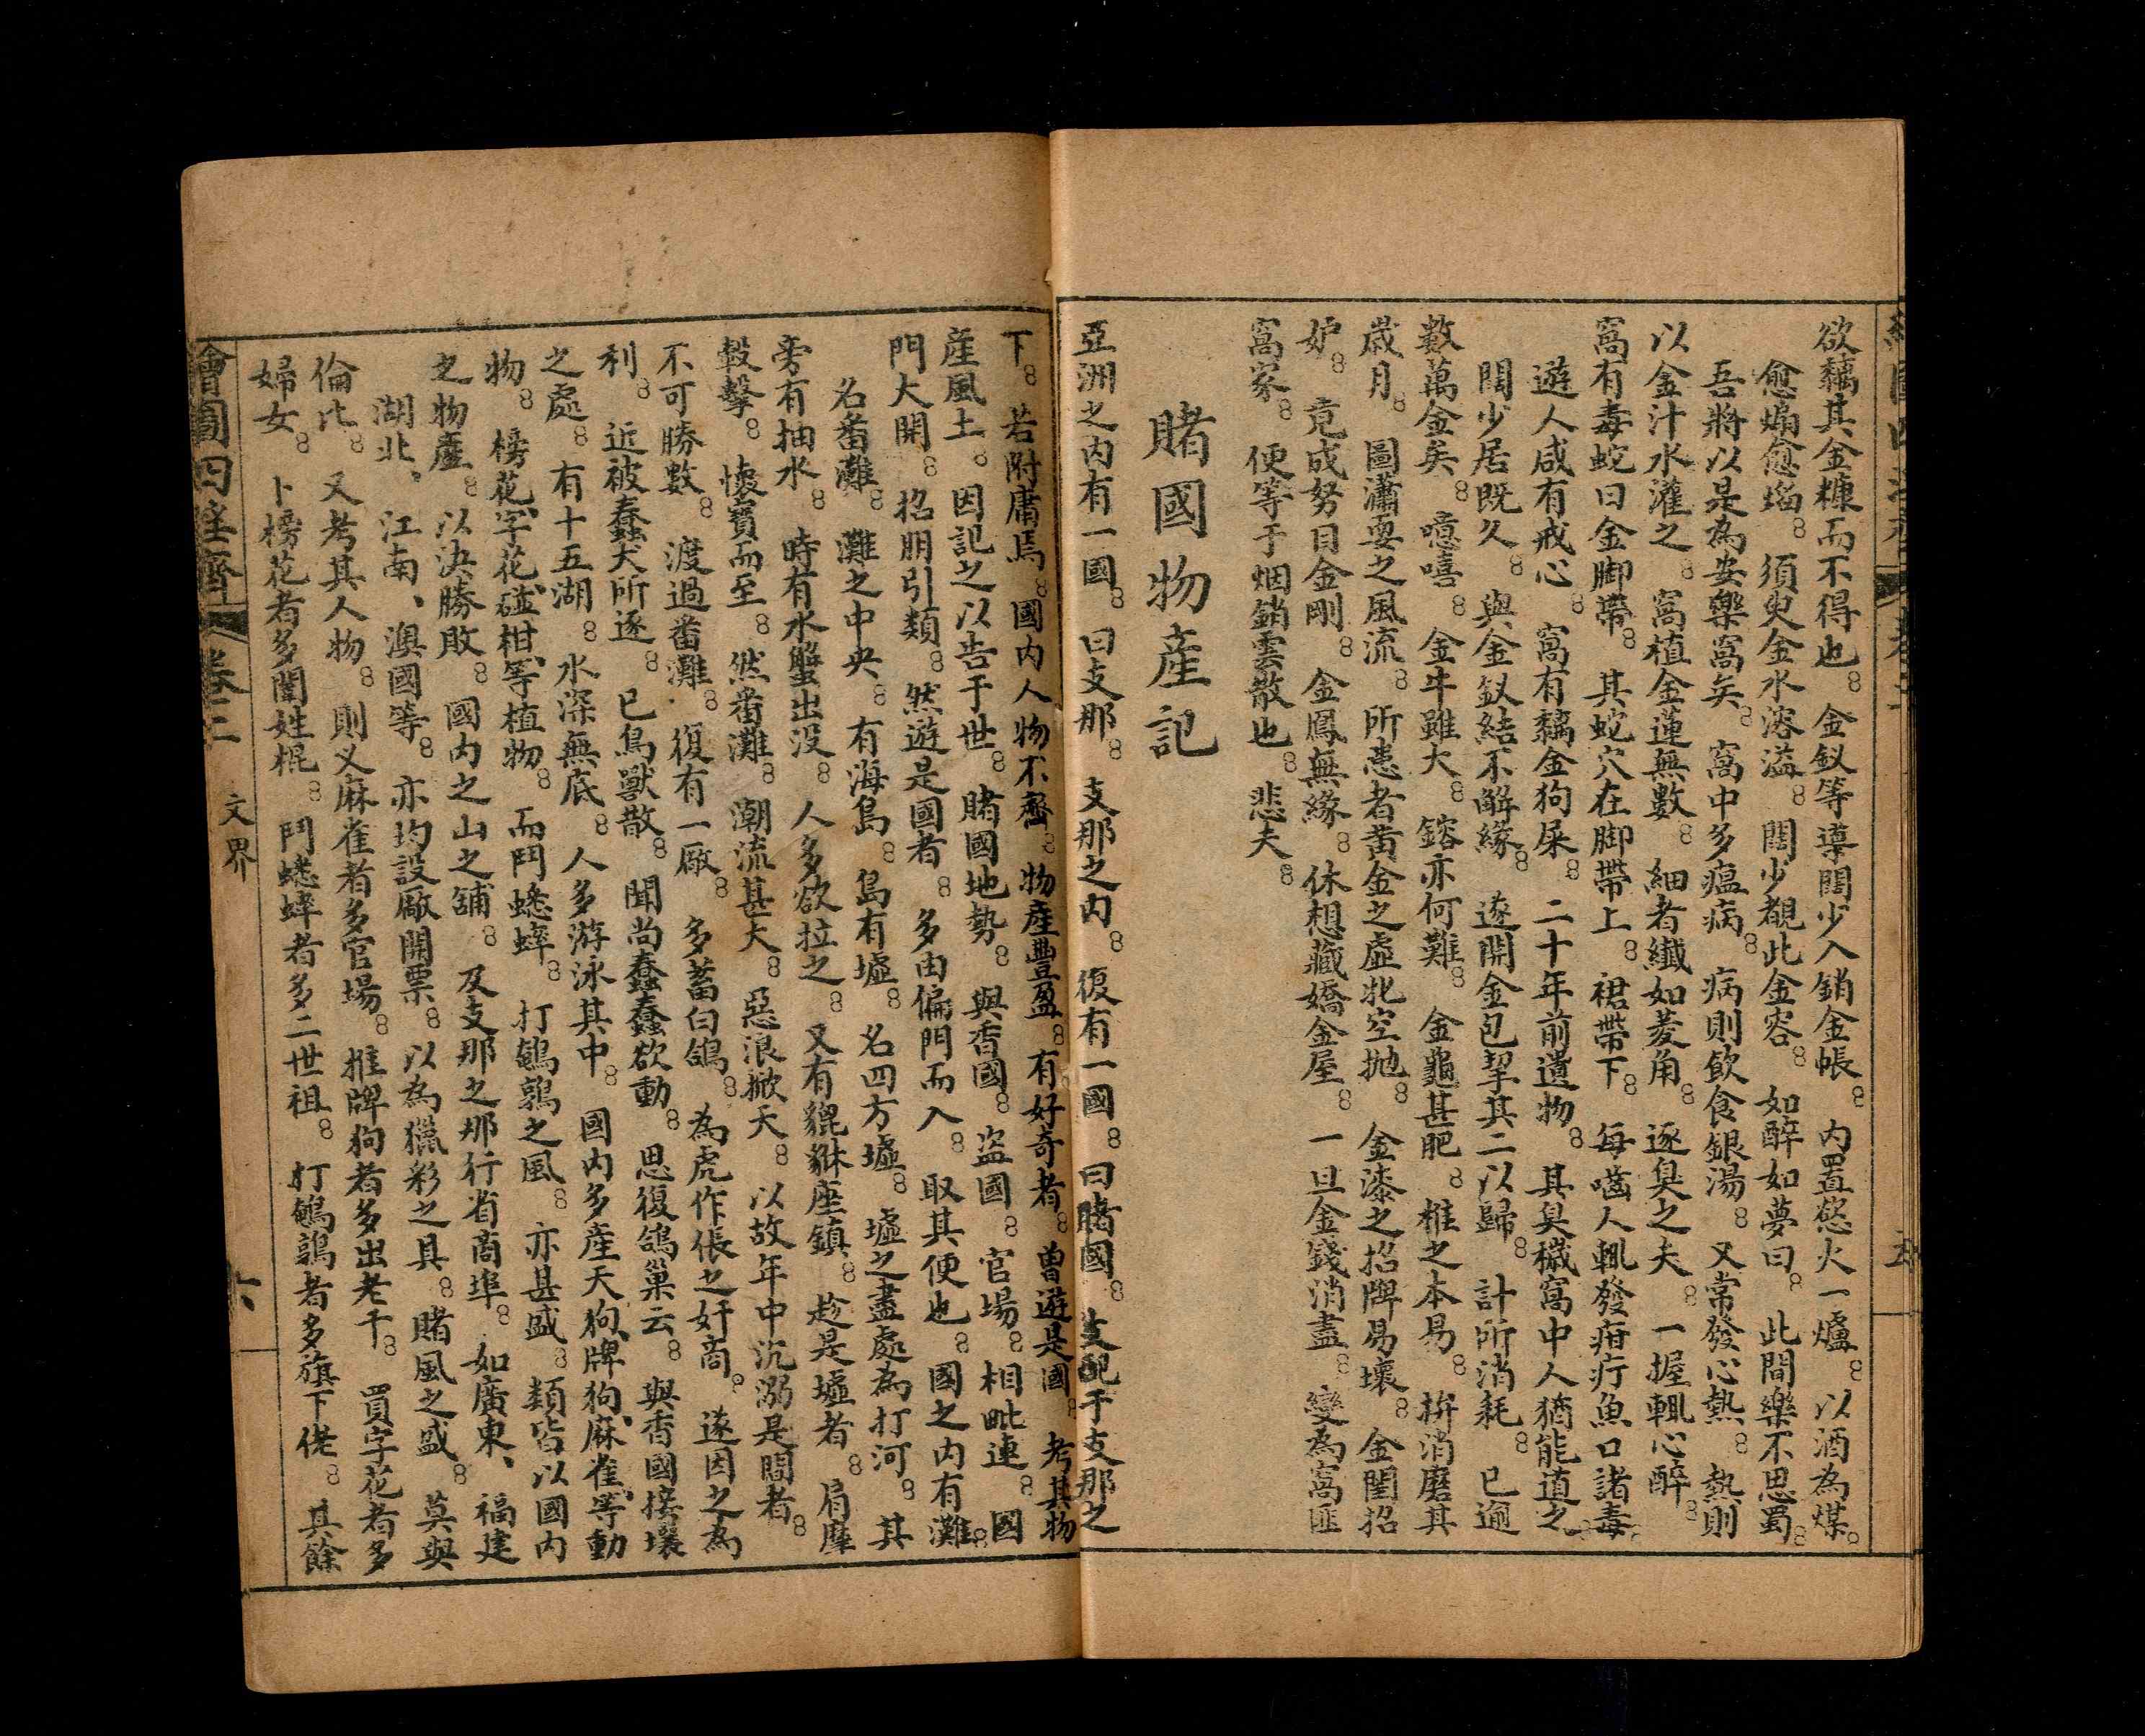 欲䵑其金糠而不得也。金釵等導闊少入銷金帳。內置慾火一爐。以酒為煤。
愈煽愈熖。須臾金水溶溢。闊少覩此金窰。如醉如夢曰。此間樂不思蜀。
吾將以是為安樂窩矣。窩中多瘟病。病則飲食銀湯。又常發心熱。熱則
以金汁水灌之。窩植金蓮無數。細者纖如菱角。逐臭之夫。一握輒心醉。
窩有毒蛇曰金脚帶。其蛇穴在脚帶上。裙帶下。每嚙人輒發疳疔魚口諸毒。
遊人咸有戒心。窩有䵑金狗屎。二十年前遺物。其臭穢窩中人猶能道之。
闊少居既久。與金釵結不解緣。遂開金包挈其二以歸。計所消耗。已逾
數萬金矣。噫嘻。金牛雖大。鎔亦何難。金龜甚肥。椎之本易。拚消磨其
歲月。圖瀟耍之風流。所患者黃金之虛牝空拋。金漆之招牌易壞。金閨招
妒。竟成努目金剛。金鳳無緣。休想藏嬌金屋。一旦金錢消盡。變為窩匪
窩家。便等于烟銷雲散也。悲夫。
賭國物產記
亞洲之內有一國。曰支那。支那之內。復有一國。曰賭國。支配于支那之
下。若附庸焉。國內人物不齊。物產豐盈。有好奇者。曾遊是國。考其物
產風土。因記之以告于世。賭國地勢。與香國。盜國。官場。相毗連。國
門大開。招朋引類。然遊是國者。多由偏門而入。取其便也。國之內有灘。
名畨灘。灘之中央。有海島。島有墟。名四方墟。墟之盡處為打河。其
旁有抽水。時有水蟹出沒。人多欲拉之。又有貔貅座鎮。趁是墟者。肩摩
轂擊。懷寶而至。然畨灘。潮流甚大。惡浪掀天。以故年中沉溺是間者。
不可勝數。渡過畨灘。復有一廠。多蓄白鴿。為虎作倀之奸商。遂因之為
利。近被蠢犬所逐。已鳥獸散。聞尚蠢蠢欲動。思復鴿巢云。與香國接壤
之處。有十五湖。水深無底。人多游泳其中。國內多產天狗、牌狗、麻雀、等動
物。榜花、字花、碰柑、等植物。而鬥蟋蟀。打鵪鶉之風。亦甚盛。類皆以國內
之物產。以決勝敗。國內之山之舖。及支那之那行省商埠。如廣東、福建
湖北、江南、澳國等。亦均設廠開票。以為獵彩之具。賭風之盛。莫與
倫比。又考其人物。則叉麻雀者多官場。推牌狗者多出老千。買字花者多
婦女。卜榜花者多闈姓棍。鬥蟋蟀者多二世祖。打鵪鶉者多旗下佬。其餘
繪圖四怪齋 卷二 文界 六